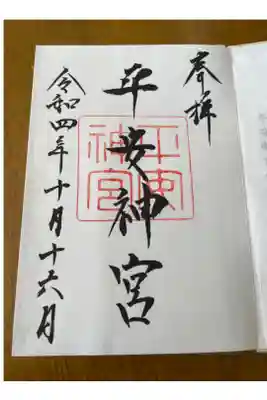 奉拝
平安神宮
神宮
令和四年十月十六日